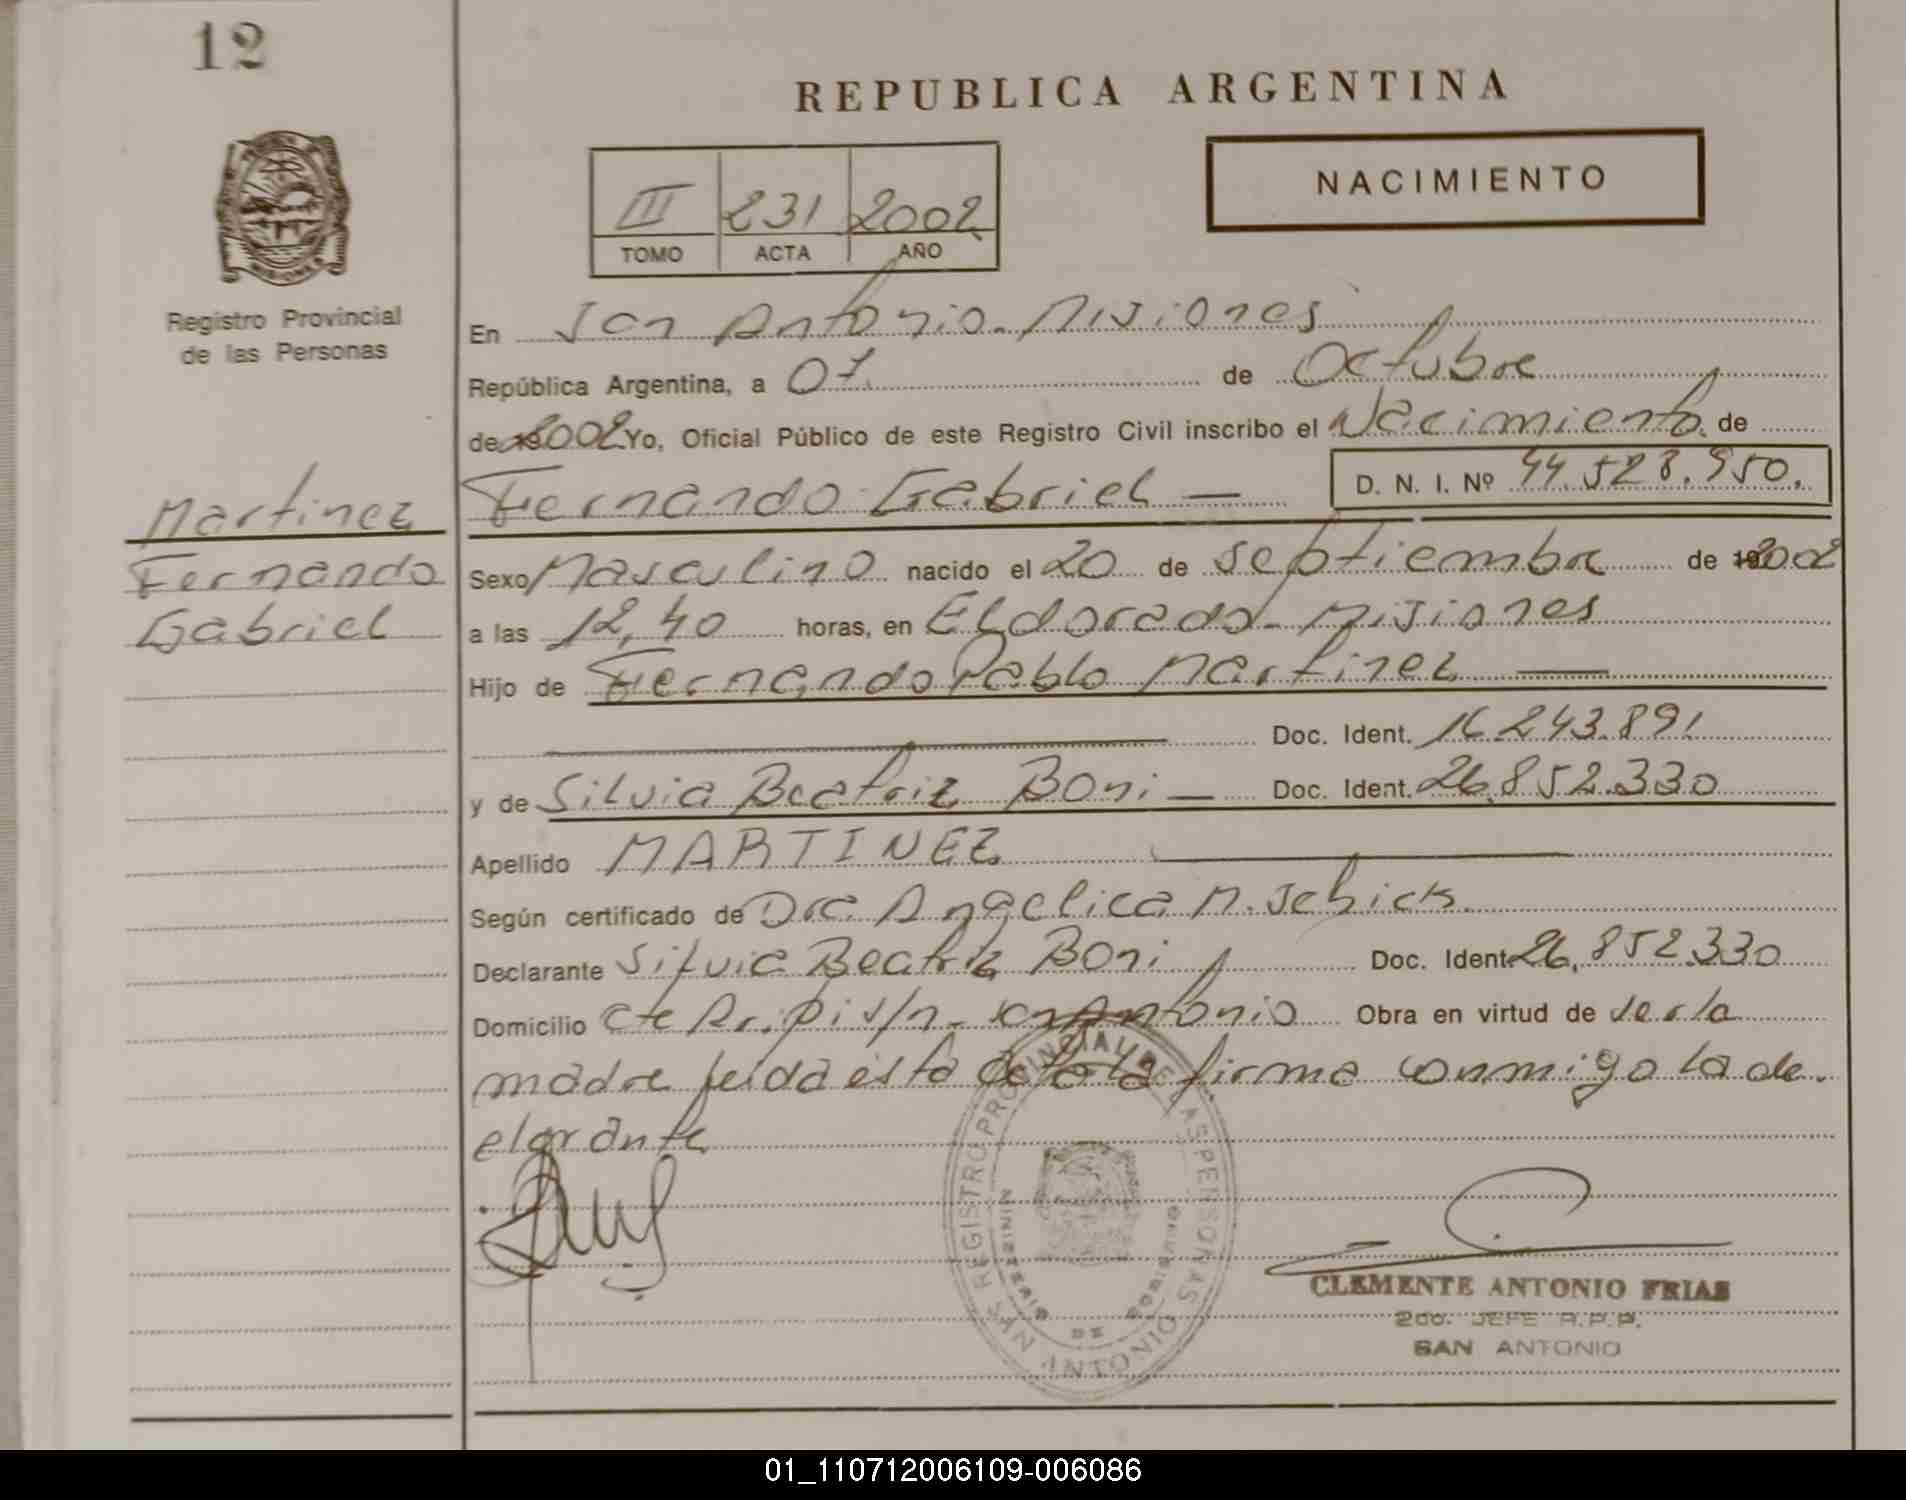 12
REPUBLICA ARGENTINA
NACIMIENTO
III 231 2002
TOMO ACTA AÑO
Registro Provincial
de las Personas
En San Antonio - Misiones
República Argentina, a 07 de Octubre
de 2002 Yo, Oficial Público de este Registro Civil inscribo el Nacimiento de
Fernando Gabriel — D. N. I. Nº 44.528.950.
Martinez
Fernando
Gabriel
Sexo Masculino nacido el 20 de Septiembre de 2002
a las 12,40 horas, en Eldorado - Misiones
Hijo de Fernando Pablo Martinez —
Doc. Ident. 16.243.891
y de Silvia Beatriz Boni — Doc. Ident. 26.852.330
Apellido MARTINEZ
Según certificado de Dra. Angelica M. Schick
Declarante Silvia Beatriz Boni Doc. Ident. 26.852.330
Domicilio Cte Ar. s/n - San Antonio Obra en virtud de ser la
madre leida esta acta la firma conmigo la de-
clarante
REGISTRO PROVINCIAL DE LAS PERSONAS
MINISTERIO DE GOBIERNO
SAN ANTONIO
CLEMENTE ANTONIO FRIAS
2do. JEFE R.P.P.
SAN ANTONIO
01_110712006109-006086